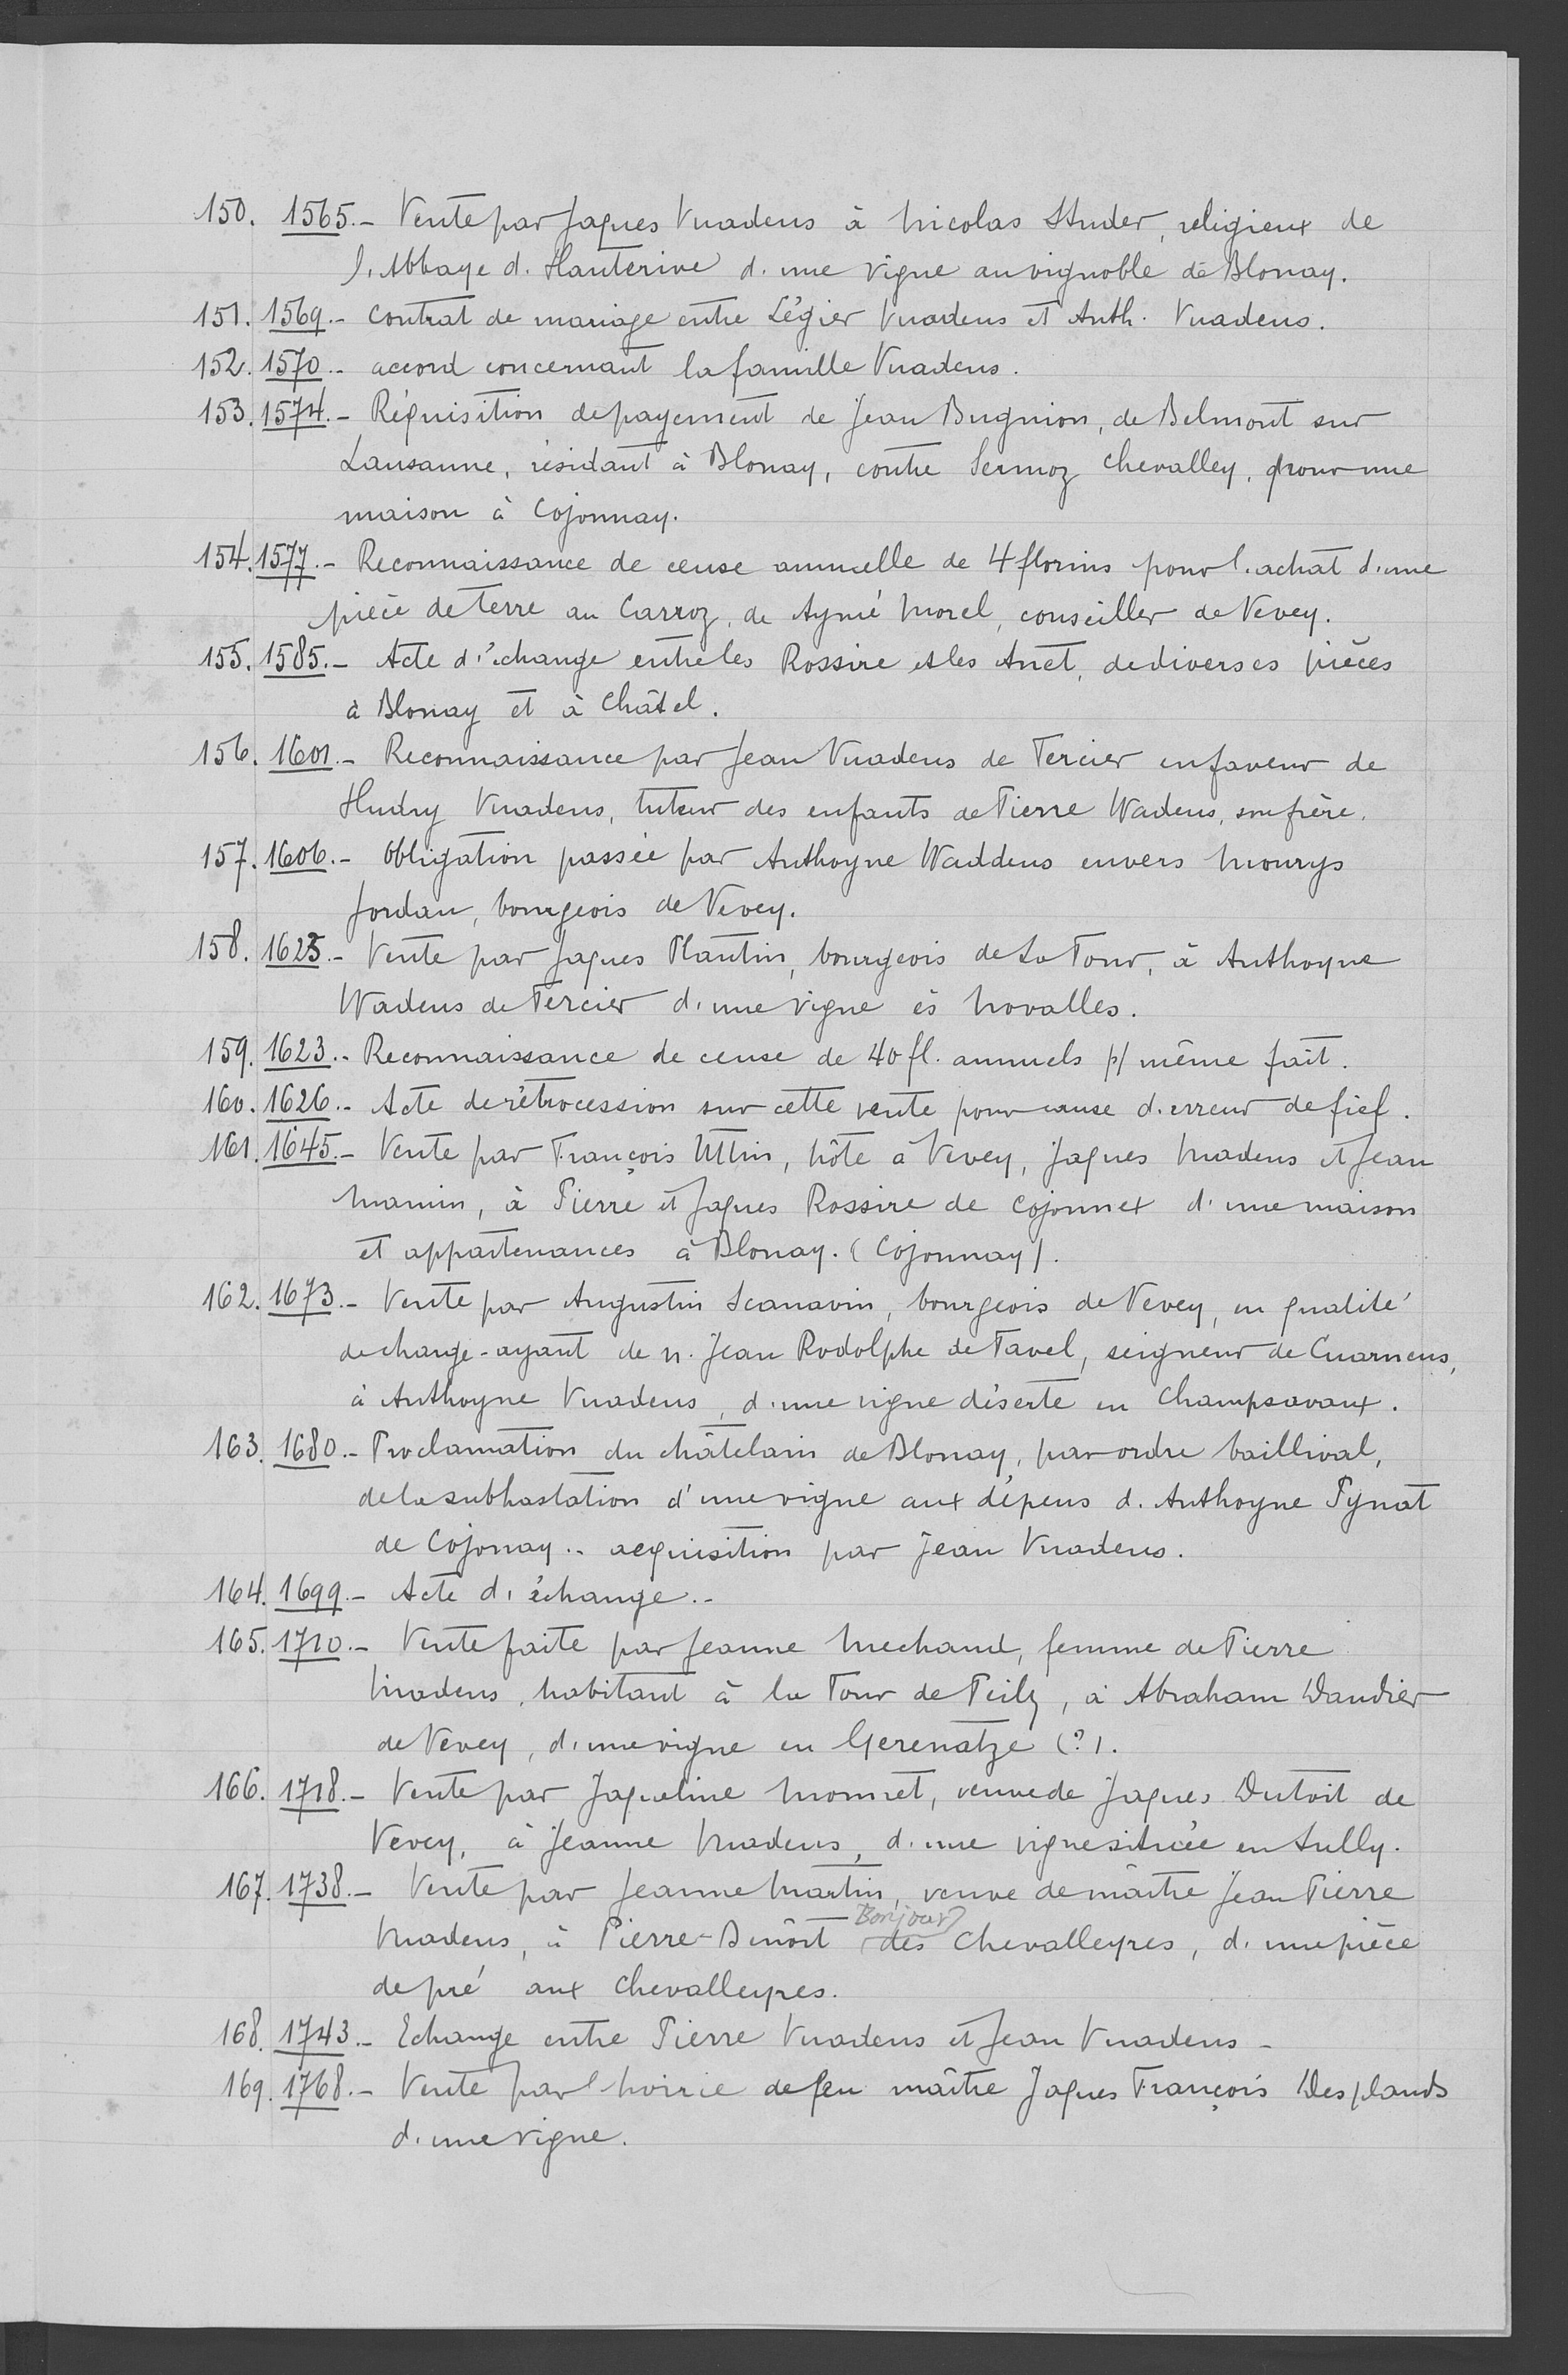 150. 1565.- Vente par Jaques Vuadens à Nicolas Studer, religieux de
l'Abbaye d'Hauterive d'une vigne au vignoble de Blonay.
151. 1569.- Contrat de mariage entre Légier Vuadens et Anth. Vuadens.
152. 1570.- accord concernant la famille Vuadens.
153. 1574.- Réquisition de payement de Jean Bugnion, de Belmont sur
Lausanne, résidant à Blonay, contre Sermoz Chevalley, pour une
maison à Cojonnay.
154. 1577.- Reconnaissance de cense annuelle de 4 florins pour l'achat d'une
pièce de terre au Carroz, de Aymé Morel, conseiller de Vevey.
155. 1585.- Acte d'échange entre les Rossire et les Anet, de diverses pièces
à Blonay et à Châtel.
156. 1601.- Reconnaissance par Jean Vuadens de Tercier en faveur de
Hudry Vuadens, tuteur des enfants de Pierre Wadens, son frère.
157. 1606.- Obligation passée par Anthoyne Waddens envers Mourys
Jordan, bourgeois de Vevey.
158. 1623.- Vente par Jaques Plantin, bourgeois de La Tour, à Anthoyne
Wadens de Tercier d'une vigne ès Novalles.
159. 1623.- Reconnaissance de cense de 40 fl. annuels p/ même fait.
160. 1626.- Acte de rétrocession sur cette vente pour cause d'erreur de fief.
161. 1645.- Vente par François Uttin, hôte à Vevey, Jaques Vuadens et Jean
Mamin, à Pierre et Jaques Rossire de Cojonnex d'une maison
et appartenances à Blonay. (Cojonnay).
162. 1673.- Vente par Augustin Scanavin, bourgeois de Vevey, en qualité
de charge-ayant de n. Jean Rodolphe de Tavel, seigneur de Cuarnens,
à Anthoyne Vuadens, d'une vigne déserte en Champsavaux.
163. 1680.- Proclamation du châtelain de Blonay, par ordre baillival,
de la subhastation d'une vigne aux dépens d'Anthoyne Pynat
de Cojonay.- acquisition par Jean Vuadens.
164. 1699.- Acte d'échange.-
165. 1710.- Vente faite par Jeanne Mechaud, femme de Pierre
Vuadens, habitant à la Tour de Peilz, à Abraham Dandier
de Vevey, d'une vigne en Gerenatze (?).
166. 1718.- Vente par Jaqueline Monnet, veuve de Jaques Dutoit de
Vevey, à Jeanne Vuadens, d'une vigne située en Sully.
167. 1738.- Vente par Jeanne Martin, veuve de maître Jean Pierre
Bonjour
Vuadens, à Pierre-Benoît des Chevalleyres, d'une pièce
de pré aux Chevalleyres.
168. 1743.- Echange entre Pierre Vuadens et Jean Vuadens-
169. 1768.- Vente par l'hoirie de feu maître Jaques François Desplands
d'une vigne.